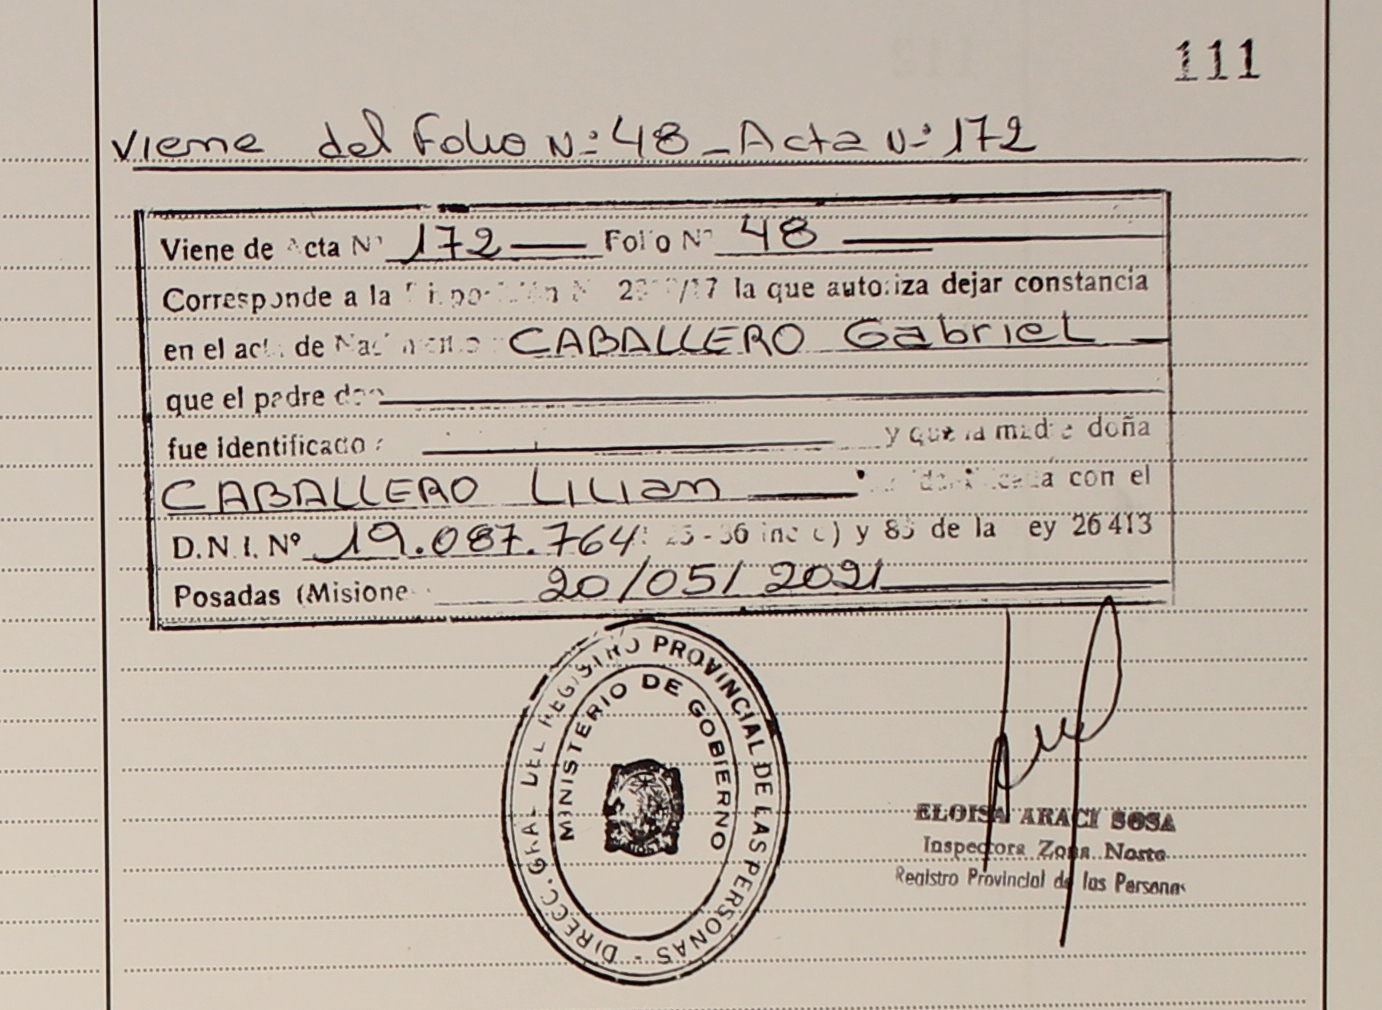 111
Viene del Folio N: 48 - Acta N: 172
Viene de Acta Nº 172 Folio Nº 48
Corresponde a la /17 la que autoriza dejar constancia
en el acta de Nacimiento CABALLERO Gabriel
que el padre don
fue identificado y que la madre doña
CABALLERO Lilian con el
D.N.I. Nº 19.087.764 y 85 de la ey 26 413
Posadas (Misione 20/05/2021
DIRECC. GRAL DEL REGISTRO PROVINCIAL DE LAS PERSONAS -
MINISTERIO DE GOBIERNO
ELOISA ARACI SOSA
Inspectora Zona Norte
Registro Provincial de las Personas